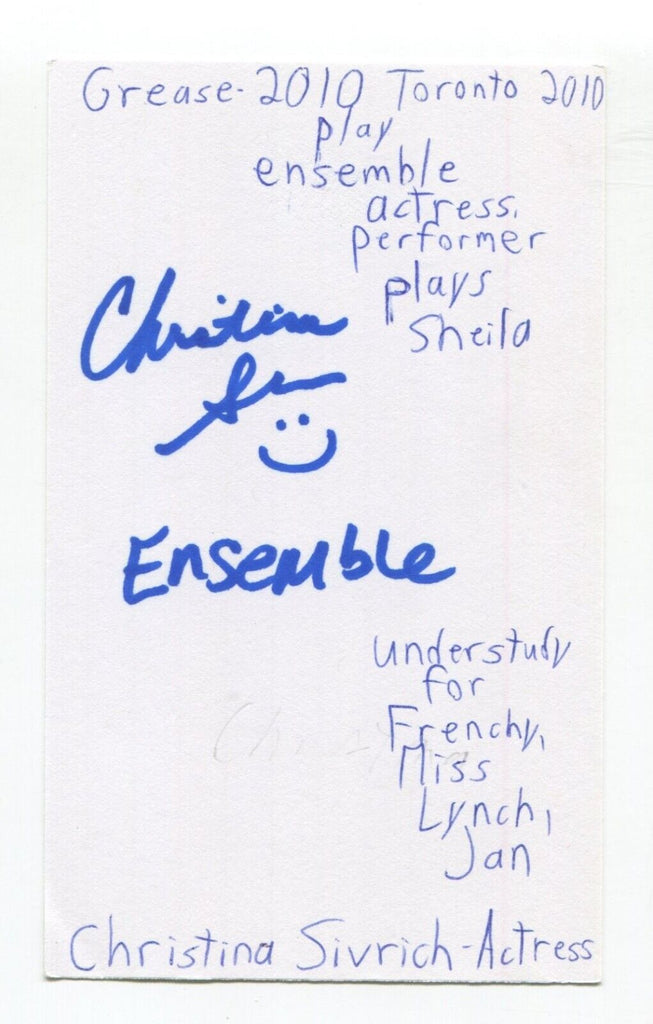 Grease-2010 Toronto 2010
play
ensemble
actress,
performer
plays
Sheila
Christina
Ensemble
understudy
for
Frenchy,
Miss
Lynch,
Jan
Christina Sivrich-Actress